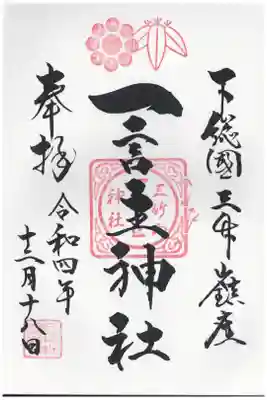 下総國三竹山鎮座
一言主神社
奉拝
令和四年
十二月十八日